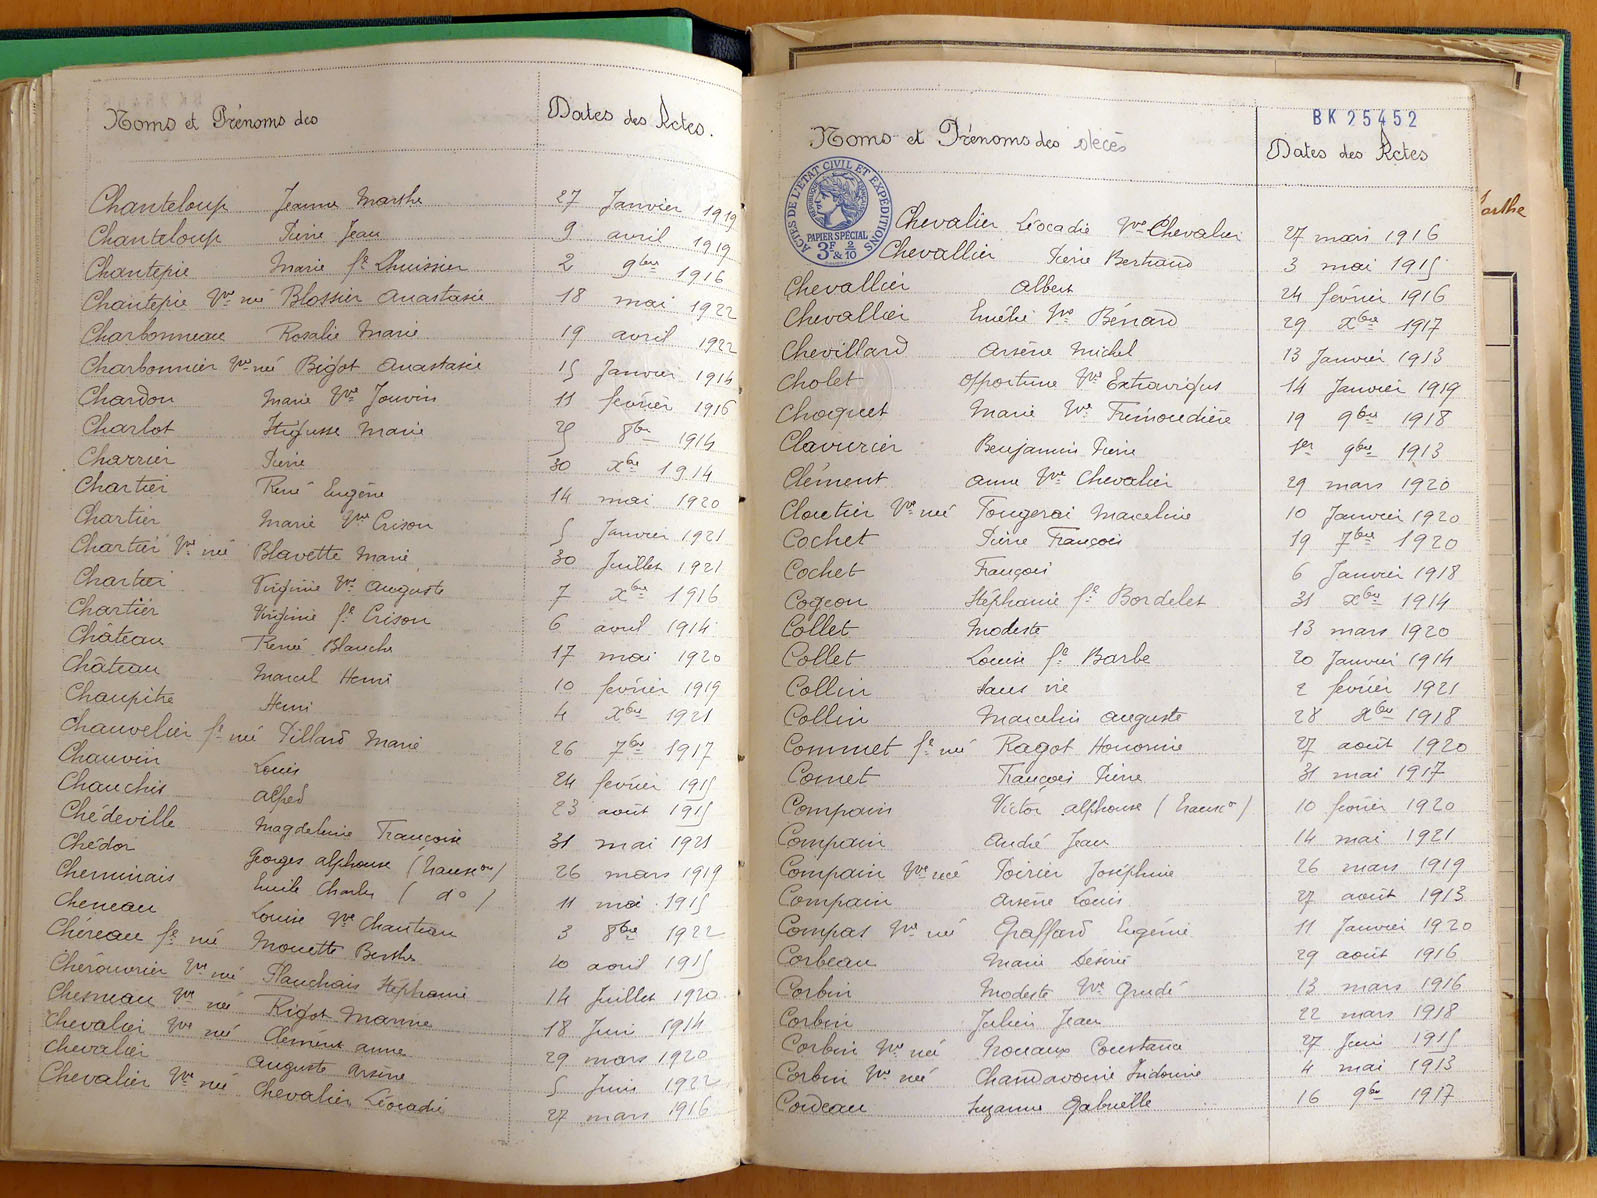 Noms et Prénoms des
Dates des Actes.
Chanteloup Jeanne Marthe 27 Janvier 1919
Chanteloup Pierre Jean 9 avril 1919
Chantepie Marie fe Lhuissier 2 9bre 1916
Chantepie Vve née Blossier Anastasie 18 mai 1922
Charbonneau Rosalie Marie 19 avril 1922
Charbonnier Vve née Bigot Anastasie 15 Janvier 1914
Chardon Marie Vve Jouvin 11 février 1916
Charlot Marie 8bre 1914
Charrier Pierre 30 Xbre 1914
Chartier René Eugène 14 mai 1920
Chartier Marie Vve Crison 5 Janvier 1921
Chartier Vve née Blavette Marie 30 Juillet 1921
Chartier Virginie Vve Auguste 7 Xbre 1916
Chartier Virginie fe Crison 6 avril 1914
Château René Blanche 17 mai 1920
Château Marcel Henri 10 février 1919
Chaupitre Henri 4 Xbre 1921
Chauvelier fe née Pillard Marie 26 7bre 1917
Chauvin Louis 24 février 1915
Chauchis Alfred 23 août 1915
Chédeville Magdeleine Françoise 31 mai 1921
Chédor Georges Alphonse (transcon) 26 mars 1919
Cheminais Emile Charles (do) 11 mai 1915
Cheneau Louise Vve Chanteau 3 8bre 1922
Chéreau fe née Mouette Berthe 10 avril 1915
Chérouvrier Vve née Plauchais Stéphanie 14 Juillet 1920
Chesneau Vve née Rigot Marine 18 Juin 1914
Chevalier Vve née Clément Anne 29 mars 1920
Chevalier Auguste Arsène 5 Juin 1922
Chevalier Vve née Chevalier Léocadie 27 mars 1916
BK 25452
Noms et Prénoms des décès
Dates des Actes
ACTES DE L'ETAT CIVIL ET EXPEDITIONS
PAPIER SPÉCIAL
3F & 2/10
Chevalier Léocadie Vve Chevalier 27 mars 1916
Chevallier Pierre Bertrand 3 mai 1915
Chevallier Albert 24 février 1916
Chevallier Emélie Vve Bénard 29 Xbre 1917
Chevillard Arsène Michel 13 Janvier 1913
Cholet Opportune Vve 14 Janvier 1919
Choquet Marie Vve Trémoudière 19 9bre 1918
Clavurier Benjamin Pierre 1er 9bre 1913
Clément Anne Vve Chevalier 29 mars 1920
Cloutier Vve née Fougerai Marceline 10 Janvier 1920
Cochet Pierre François 19 7bre 1920
Cochet François 6 Janvier 1918
Cogeon Stéphanie fe Bordelet 31 Xbre 1914
Collet Modeste 13 mars 1920
Collet Louise fe Barbe 20 Janvier 1914
Collin sans vie 2 février 1921
Collin Marcelin Auguste 28 Xbre 1918
Commet fe née Ragot Honorine 27 août 1920
Comet François Pierre 31 mai 1917
Compain Victor Alphonse (transcon) 10 février 1920
Compain André Jean 14 mai 1921
Compain Vve née Poirier Joséphine 26 mars 1919
Compain Arsène Louis 27 août 1913
Compas Vve née Graffard Eugénie 11 Janvier 1920
Corbeau Marie Désirée 29 août 1916
Corbin Modeste Vve Grudé 13 mars 1916
Corbin Julien Jean 22 mars 1918
Corbin Vve née Constance 27 Juin 1915
Corbin Vve née Chandavoine 4 mai 1913
Cordeau Suzanne Gabrielle 16 9bre 1917